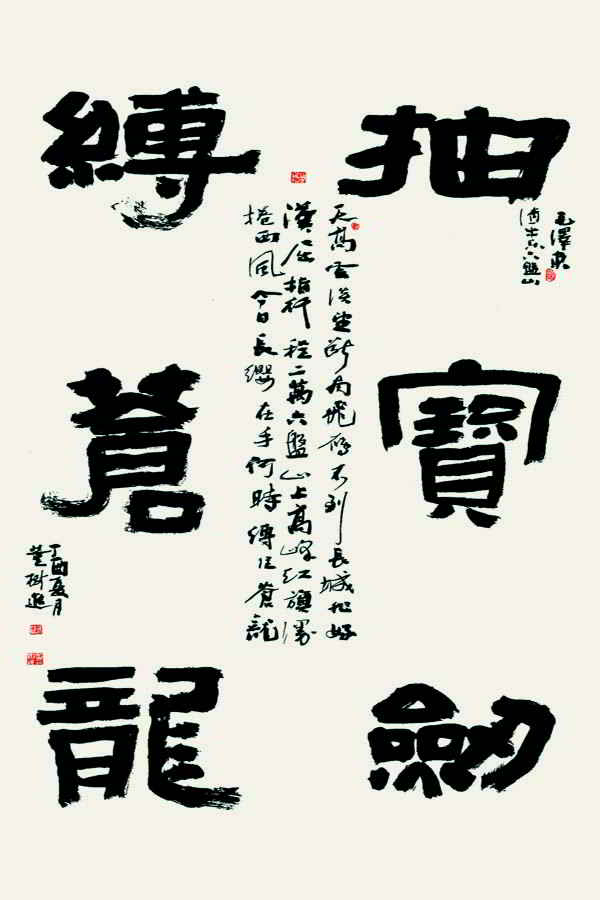 抽寶劍
毛澤東
六盤山
天高雲淡望斷南飛雁不到長城非好
漢屈指行程二萬六盤山上高峰紅旗漫
捲西風今日長纓在手何時縛住蒼龍
縛蒼龍
丁酉夏月